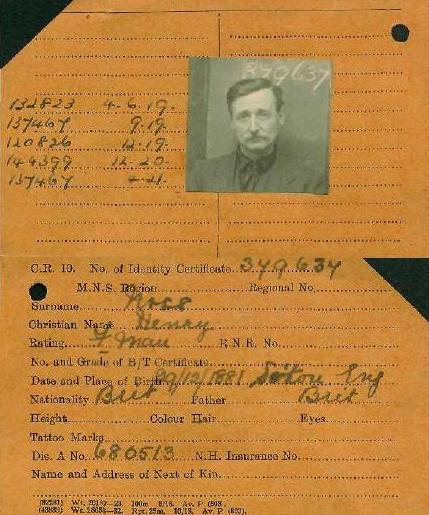 879637
132823 4-6.19.
137467 9.19
120826 12.19
144399 12-20
137467 4-21
C.R. 10. No. of Identity Certificate 879637
M.N.S. Region Regional No.
Surname Ross
Christian Name Henry
Rating F Man R.N.R. No.
No. and Grade of B/T Certificate
Date and Place of Birth 20/12/1881 Soton Eng
Nationality Brit Father Brit
Height Colour Hair Eyes
Tattoo Marks
Dis. A No. 680513 N.H. Insurance No.
Name and Address of Next of Kin